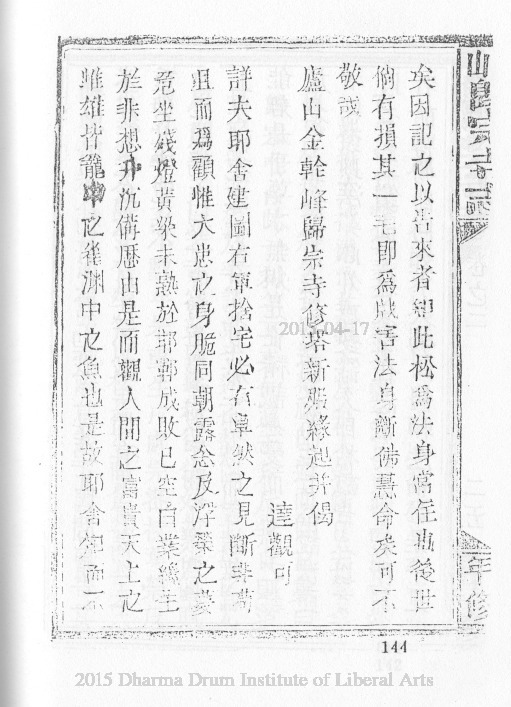 矣因記之以告來者卽此松爲法身常住也後世
倘有損其一毛卽爲戕害法身斷佛慧命矣可不
敬哉
廬山金輪峰歸宗寺修塔新殿緣起并偈
達觀可
詳夫耶舍建圖右軍捨宅必有卓然之見斷非苟
且而爲顧惟大患之身脆同朝露念及浮榮之
竟坐殘燈黃粱未熟於邯鄲成敗已空白業纔生
於非想升沉備歷由是而觀人間之富貴天上之
雌雄皆籠中之雀淵中之魚也是故耶舍 而不
年修
144
2015-04-17
2015 Dharma Drum Institute of Liberal Arts